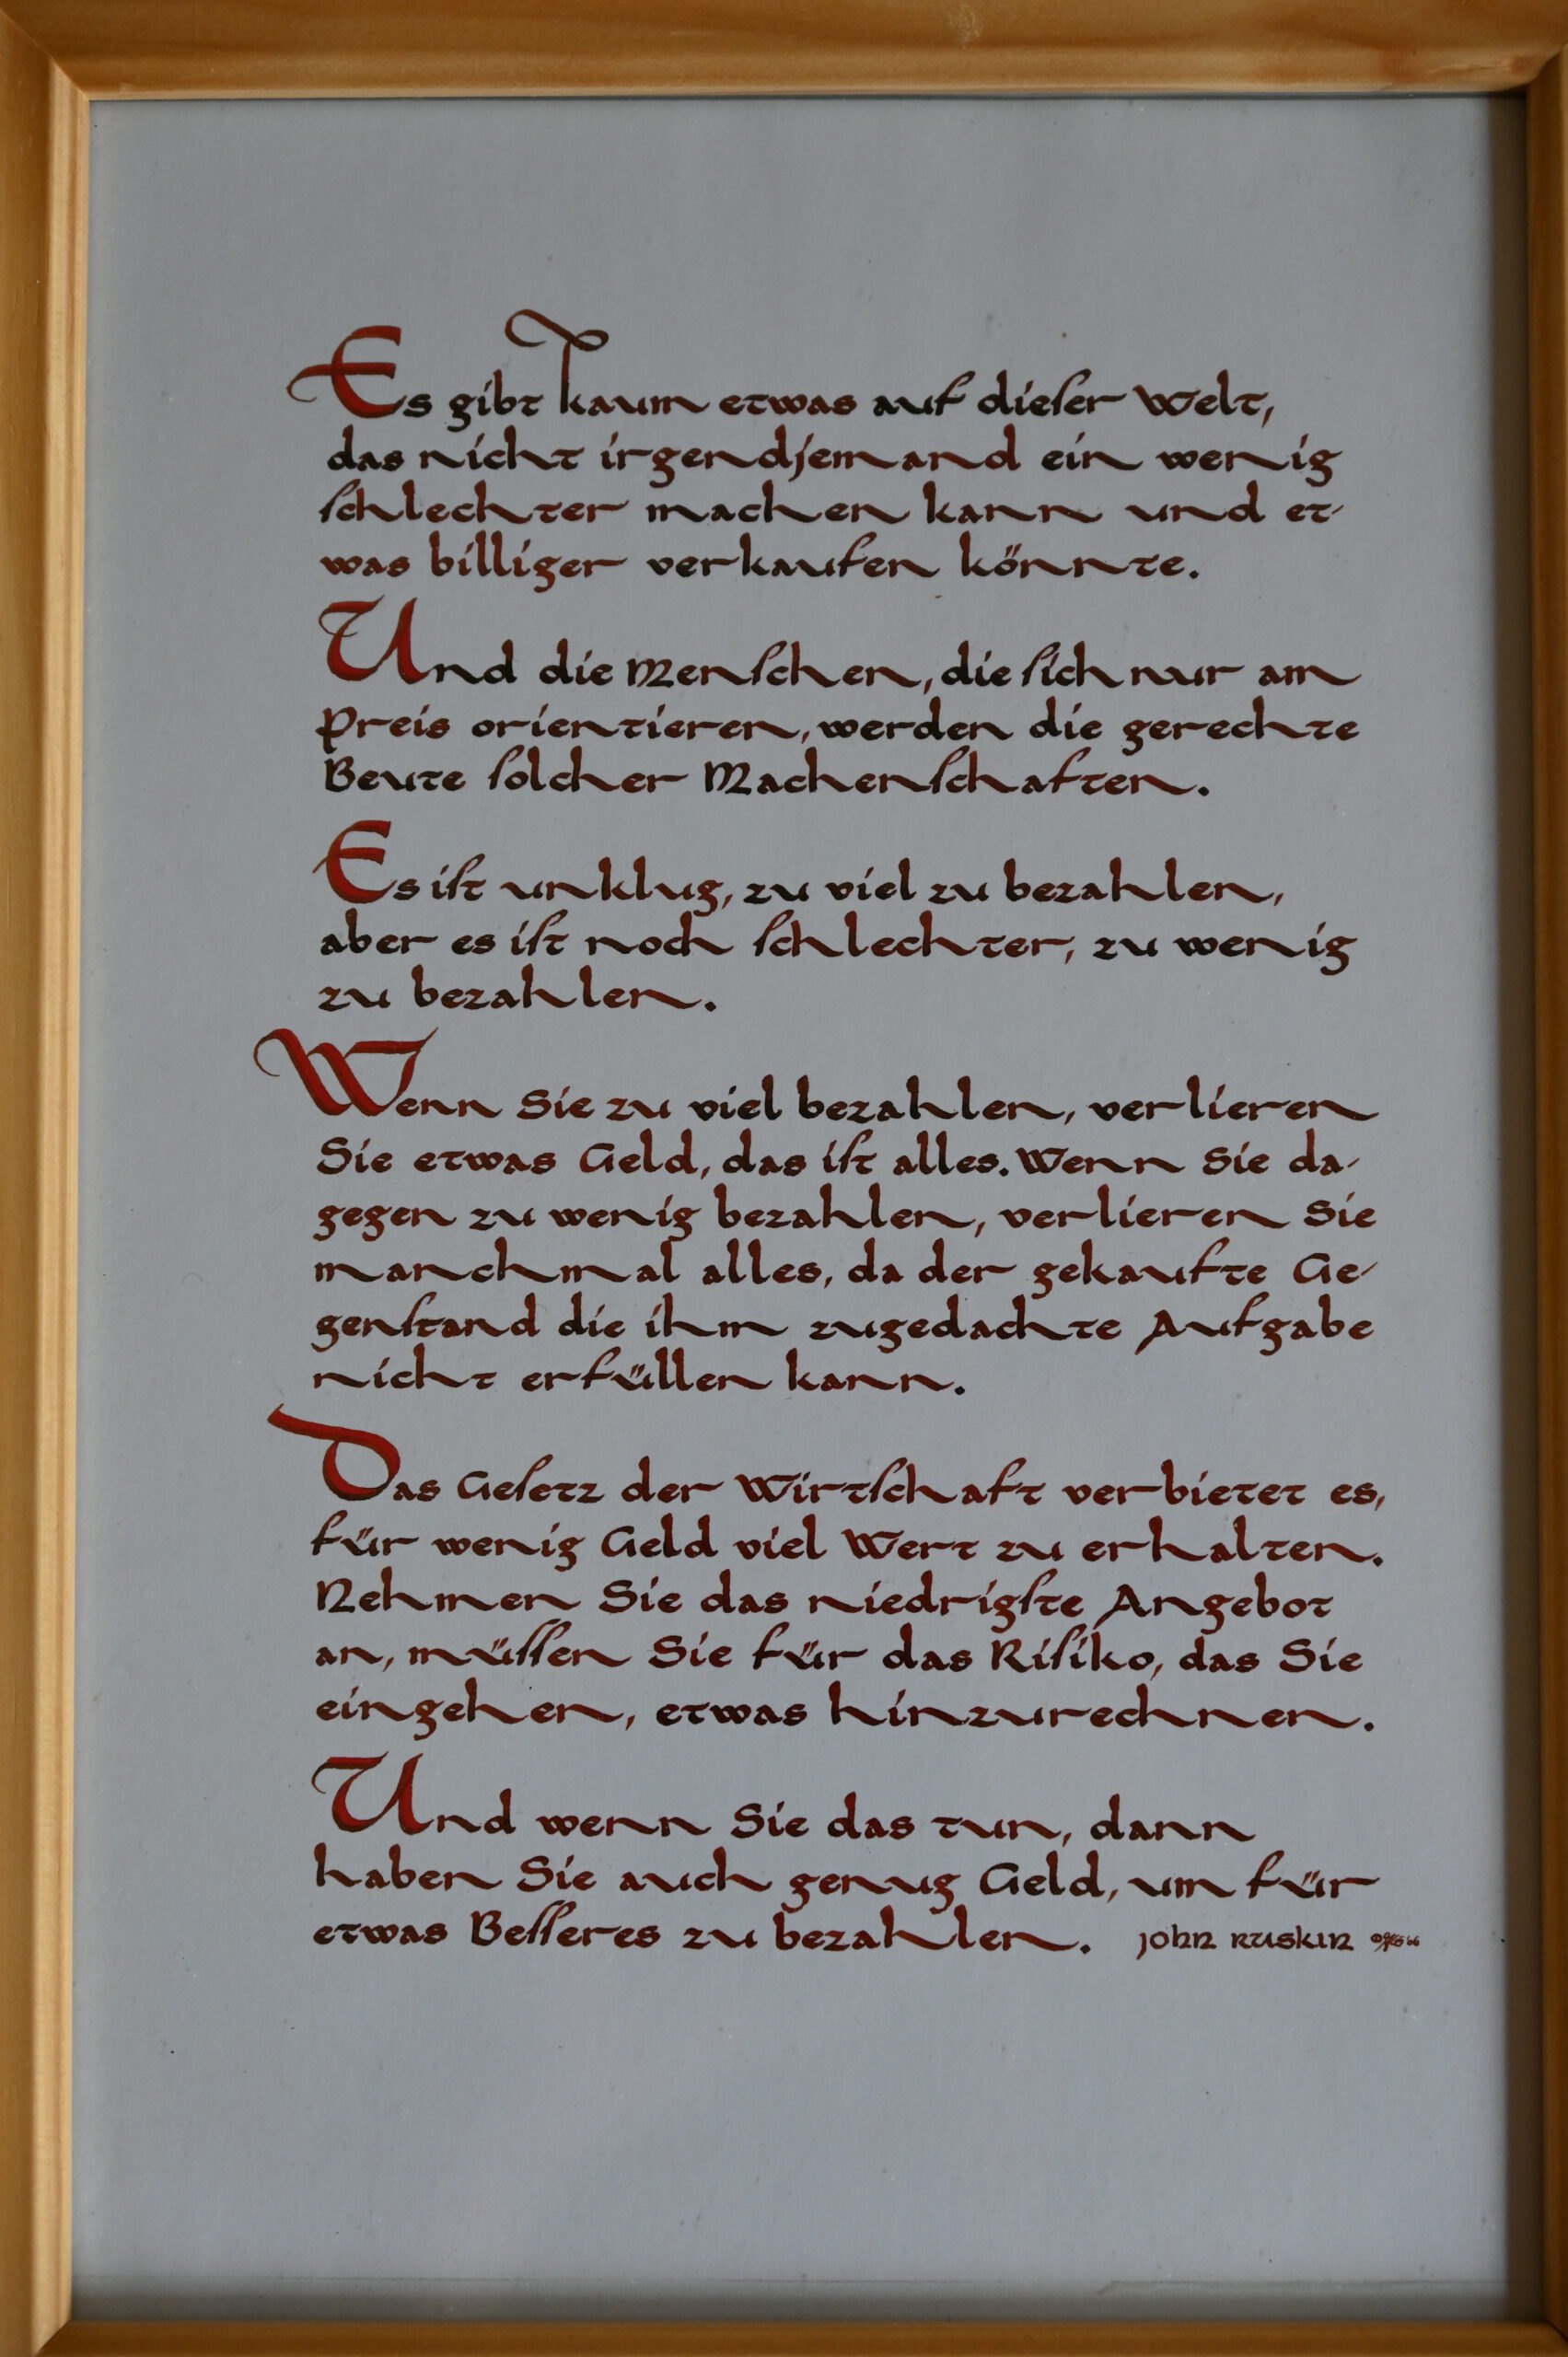 Es gibt kaum etwas auf dieſer Welt,
das nicht irgendjemand ein wenig
ſchlechter machen kann und et-
was billiger verkaufen könnte.
Und die Menſchen, die ſich nur am
Preis orientieren, werden die gerechte
Beute ſolcher Machenſchaften.
Es iſt unklug, zu viel zu bezahlen,
aber es iſt noch ſchlechter, zu wenig
zu bezahlen.
Wenn Sie zu viel bezahlen, verlieren
Sie etwas Geld, das iſt alles. Wenn Sie da-
gegen zu wenig bezahlen, verlieren Sie
manchmal alles, da der gekaufte Ge-
genſtand die ihm zugedachte Aufgabe
nicht erfüllen kann.
Das Geſetz der Wirtſchaft verbietet es,
für wenig Geld viel Wert zu erhalten.
Nehmen Sie das niedrigſte Angebot
an, müſſen Sie für das Riſiko, das Sie
eingehen, etwas hinzurechnen.
Und wenn Sie das tun, dann
haben Sie auch genug Geld, um für
etwas Beſſeres zu bezahlen. John Ruskin